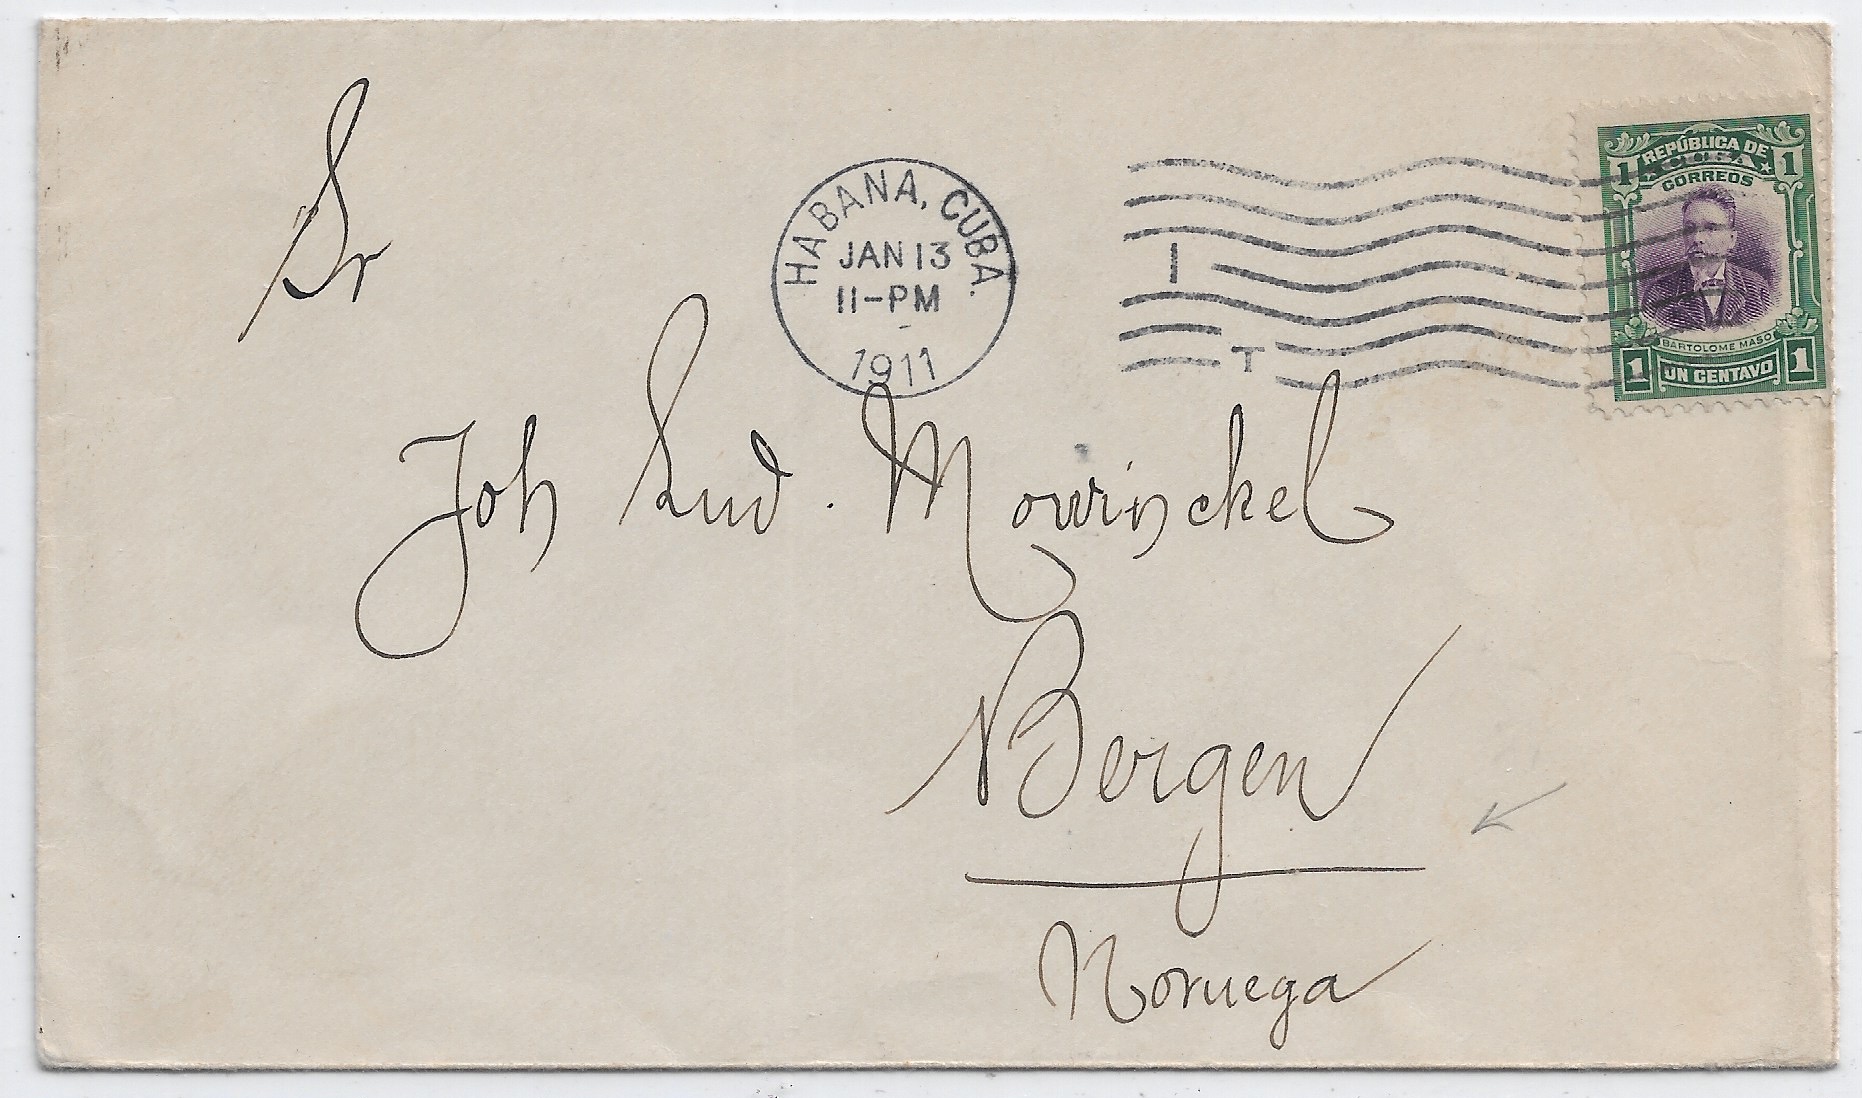 Sr
HABANA, CUBA.
JAN 13
11-PM
1911
I
T
1 REPÚBLICA DE 1
CUBA
CORREOS
BARTOLOME MASO
1 UN CENTAVO 1
Joh Lud. Mowinckel
Bergen
Noruega